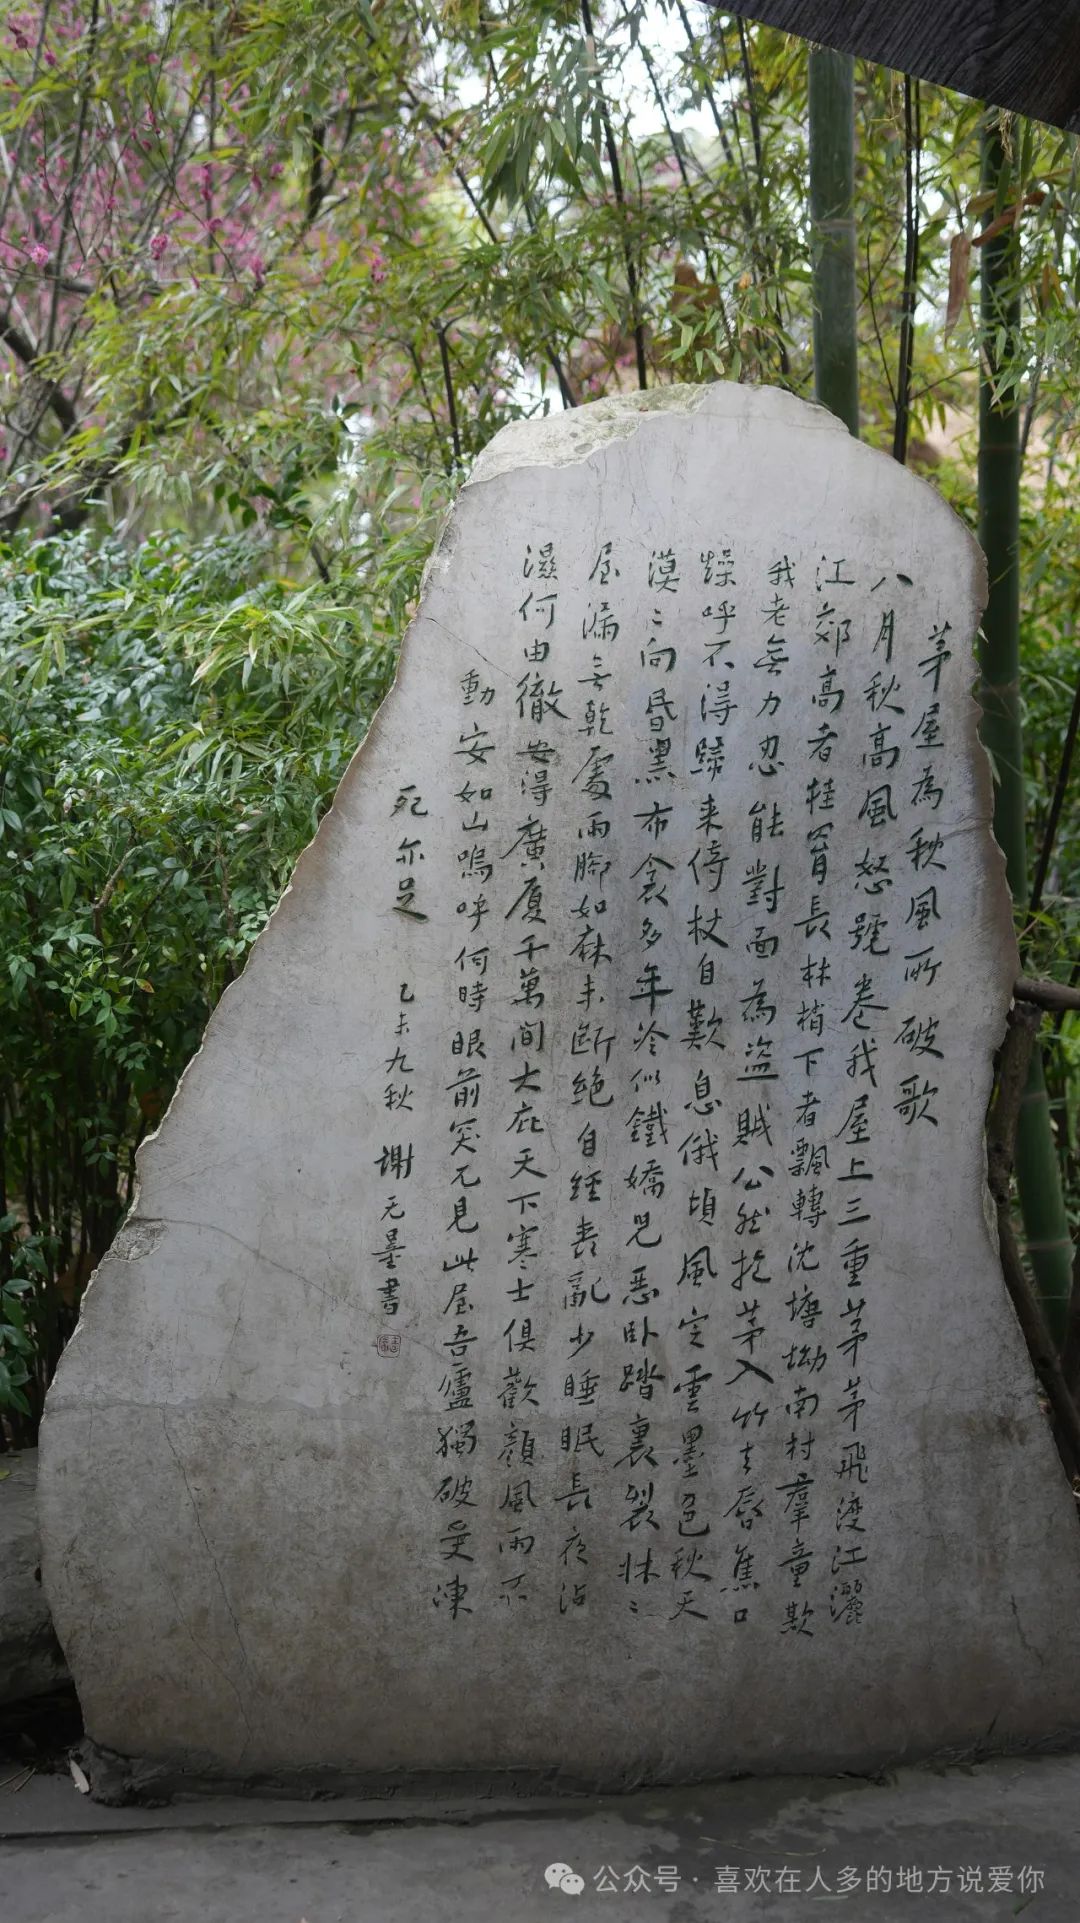 茅屋為秋風所破歌
八月秋高風怒號卷我屋上三重茅茅飛渡江灑
江郊高者挂罥長林梢下者飄轉沈塘坳南村羣童欺
我老無力忍能對面為盜賊公然抱茅入竹去唇焦口
燥呼不得歸来倚杖自歎息俄頃風定雲墨色秋天
漠〻向昏黑布衾多年冷似鐵嬌兒惡卧踏裏裂牀〻
屋漏无乾處雨腳如麻未斷絶自經喪亂少睡眠長夜沾
濕何由徹安得廣厦千萬間大庇天下寒士俱歡顏風雨不
動安如山嗚呼何時眼前突兀見此屋吾廬獨破受凍
死亦足 乙未九秋 謝无量書
公众号·喜欢在人多的地方说爱你